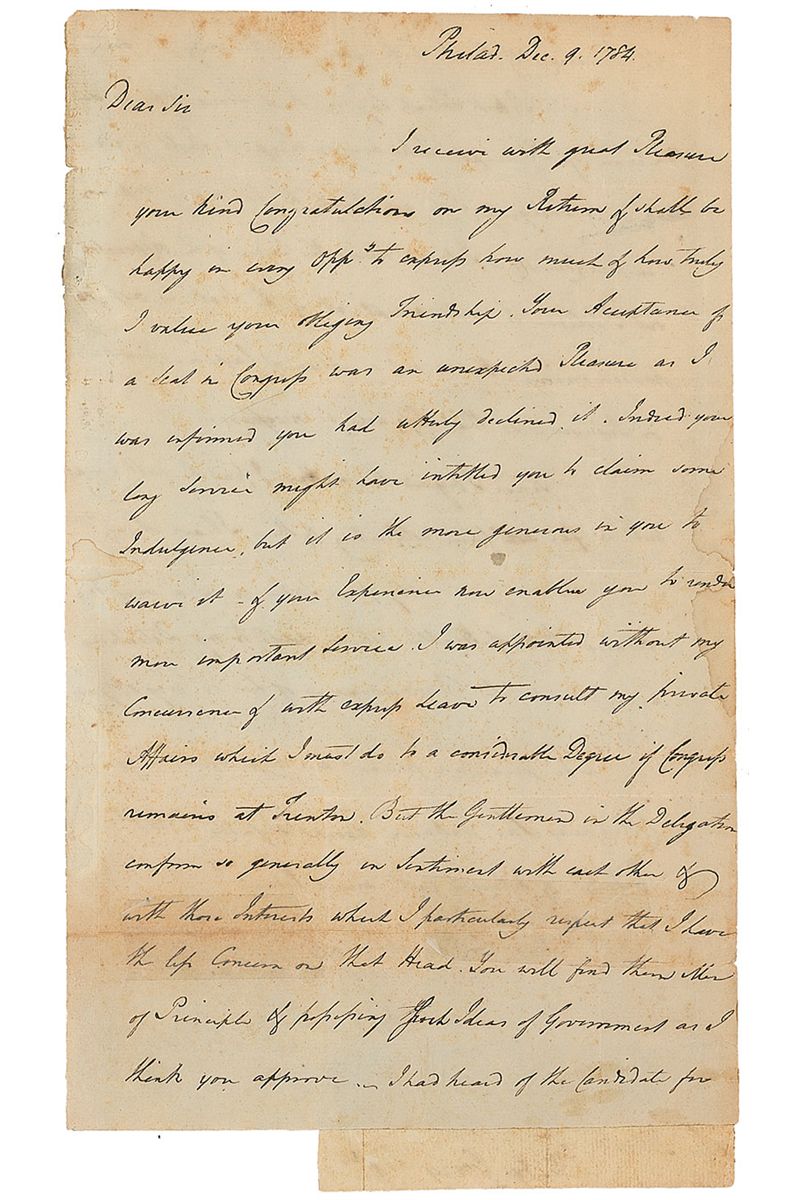 Philad. Dec. 9. 1784.
Dear Sir
I receive with great Pleasure
your kind Congratulations on my Return & shall be
happy in every Oppy. to express how much & how truly
I value your obliging Friendship. Your Acceptance of
a Seat in Congress was an unexpected Pleasure as I
was informed you had utterly declined it. Indeed your
long Service might have intitled you to claim some
Indulgence, but it is the more generous in you to
waive it - & your Experience now enables you to render
more important Service. I was appointed without my
Concurrence & with express Leave to consult my private
Affairs which I must do to a considerable Degree if Congress
remains at Trenton. But the Gentlemen in the Delegation
conform so generally in Sentiment with each other &
with those Interests which I particularly respect that I have
the less Concern on that Head. You will find them Men
of Principle & possessing such Ideas of Government as I
think you approve. — I had heard of the Candidate for